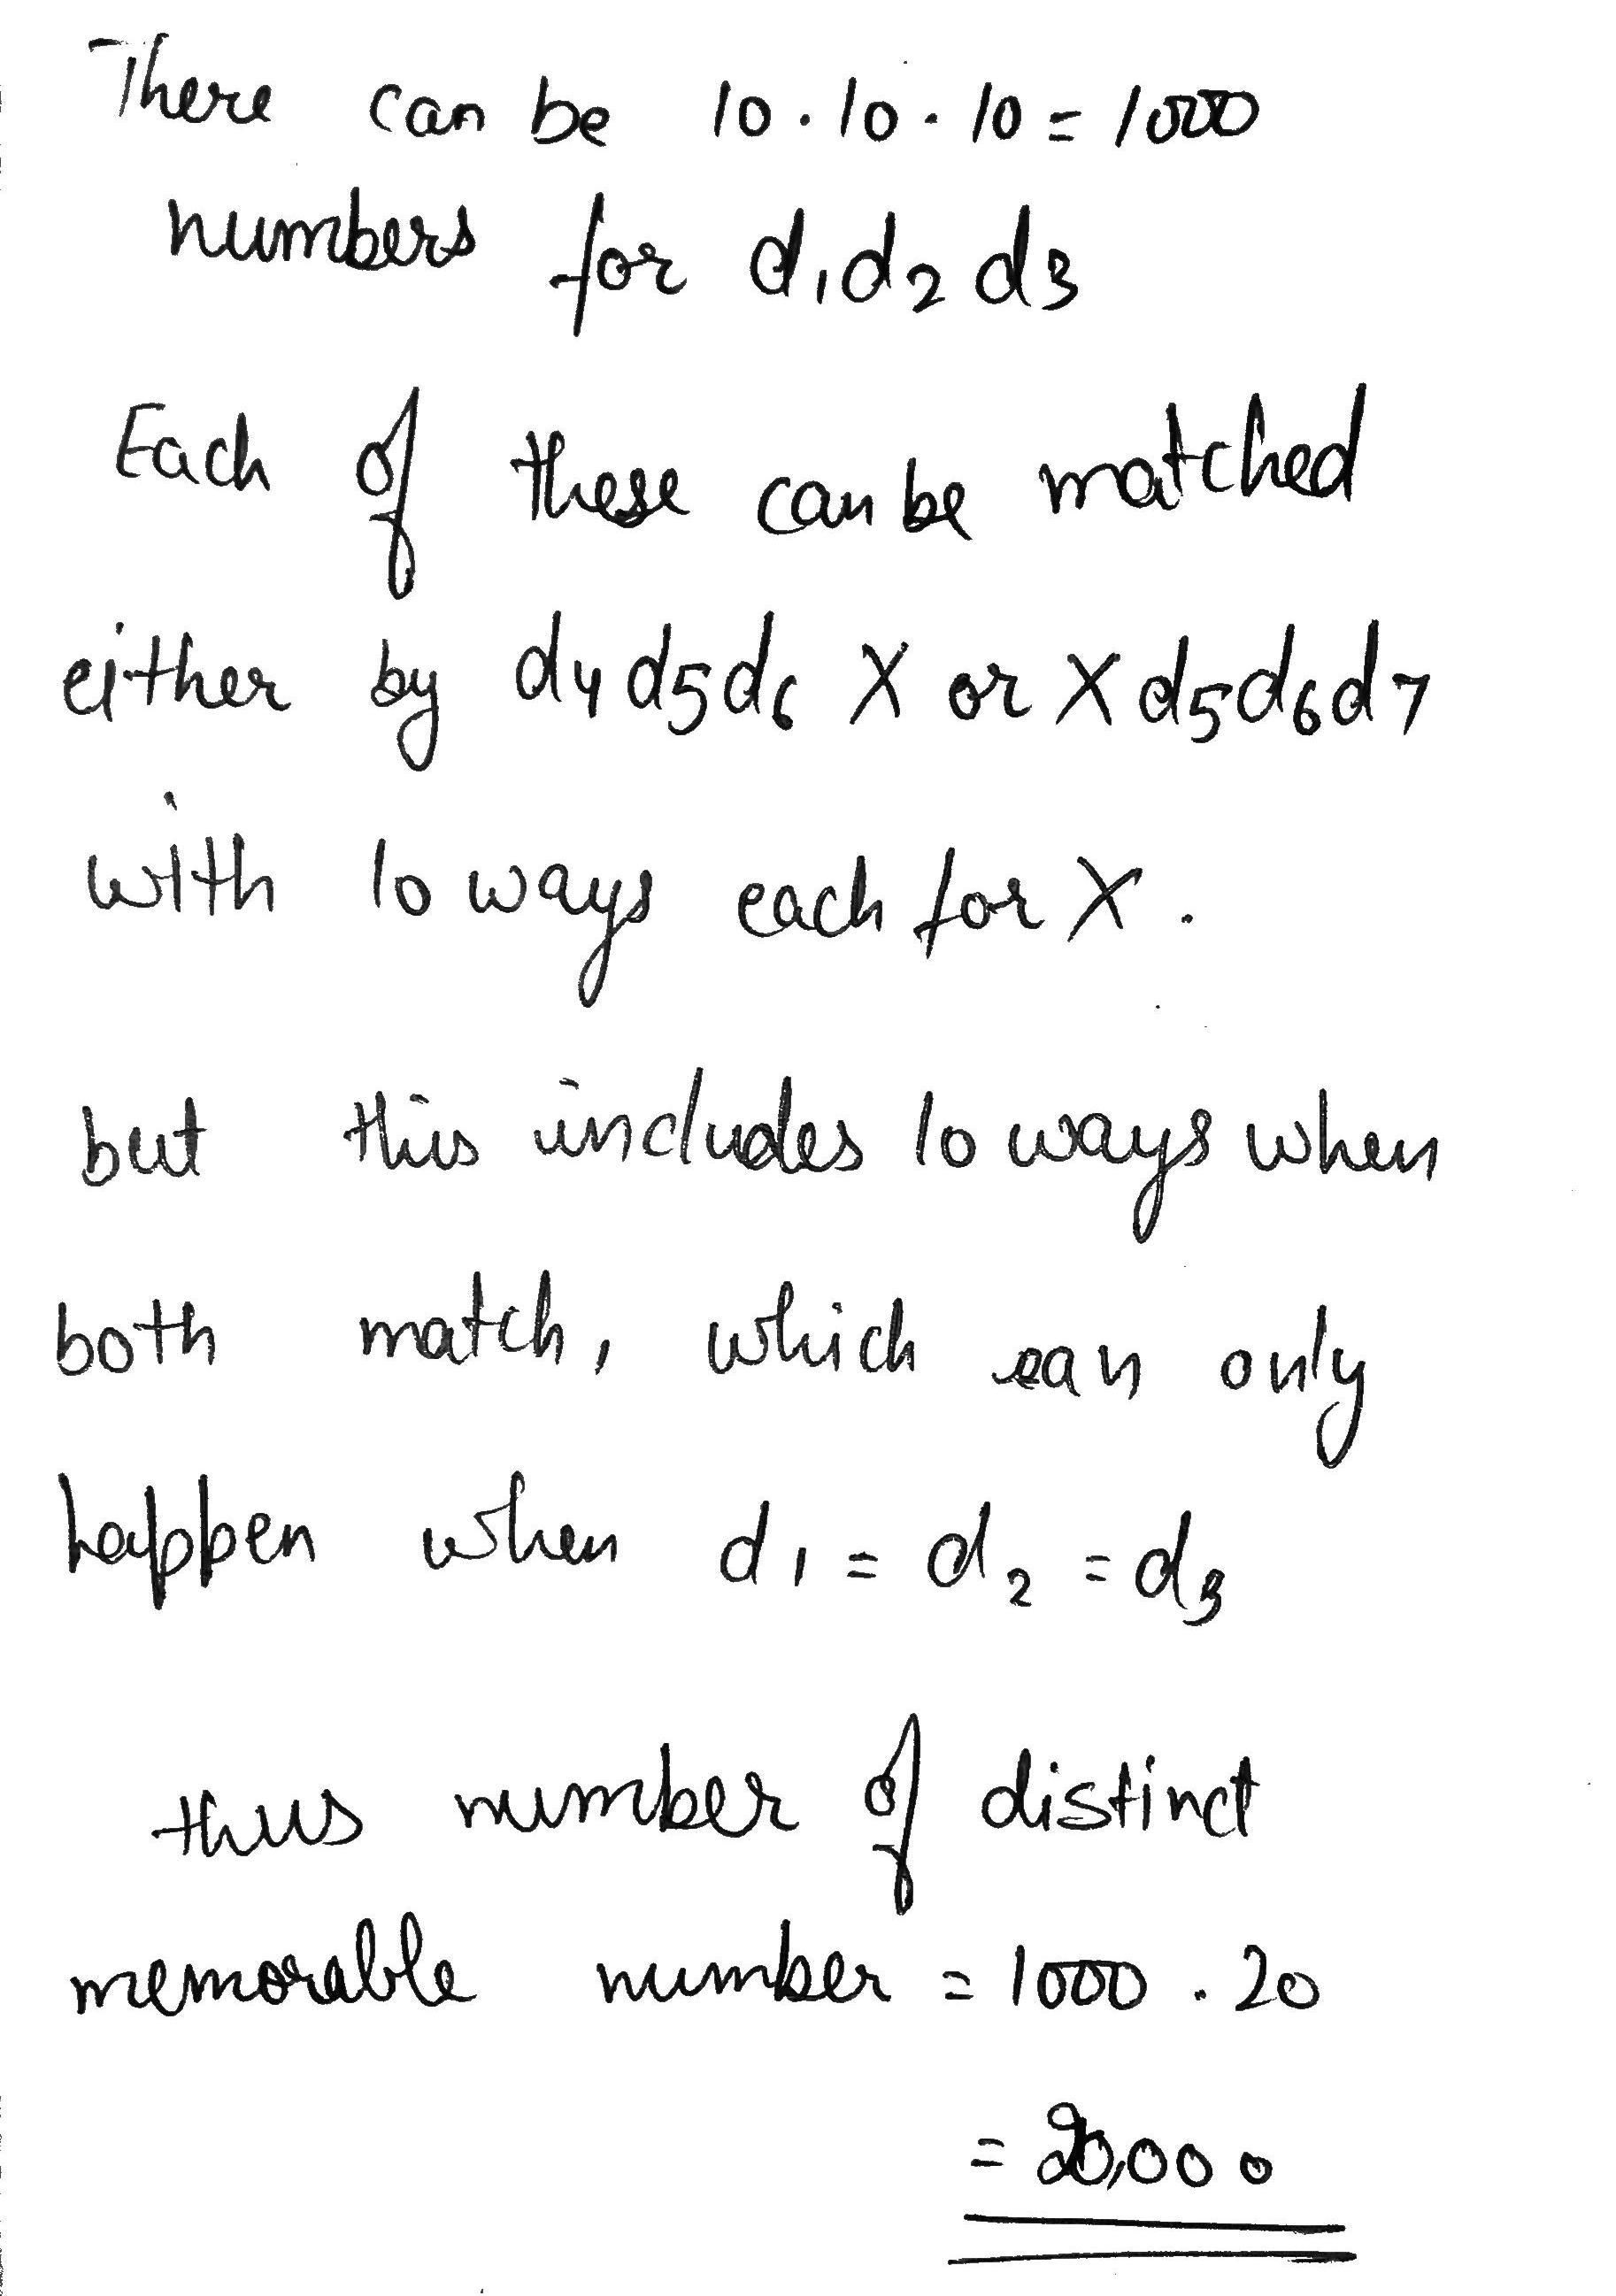 There can be 10 . 10 . 10 = 1000
numbers for d1d2d3
Each of these can be matched
either by d4d5d6 X or X d5d6d7
with 10 ways each for X .
but this includes 10 ways when
both match, which can only
happen when d1 = d2 = d3
thus number of distinct
memorable number = 1000 . 20
= 20,000